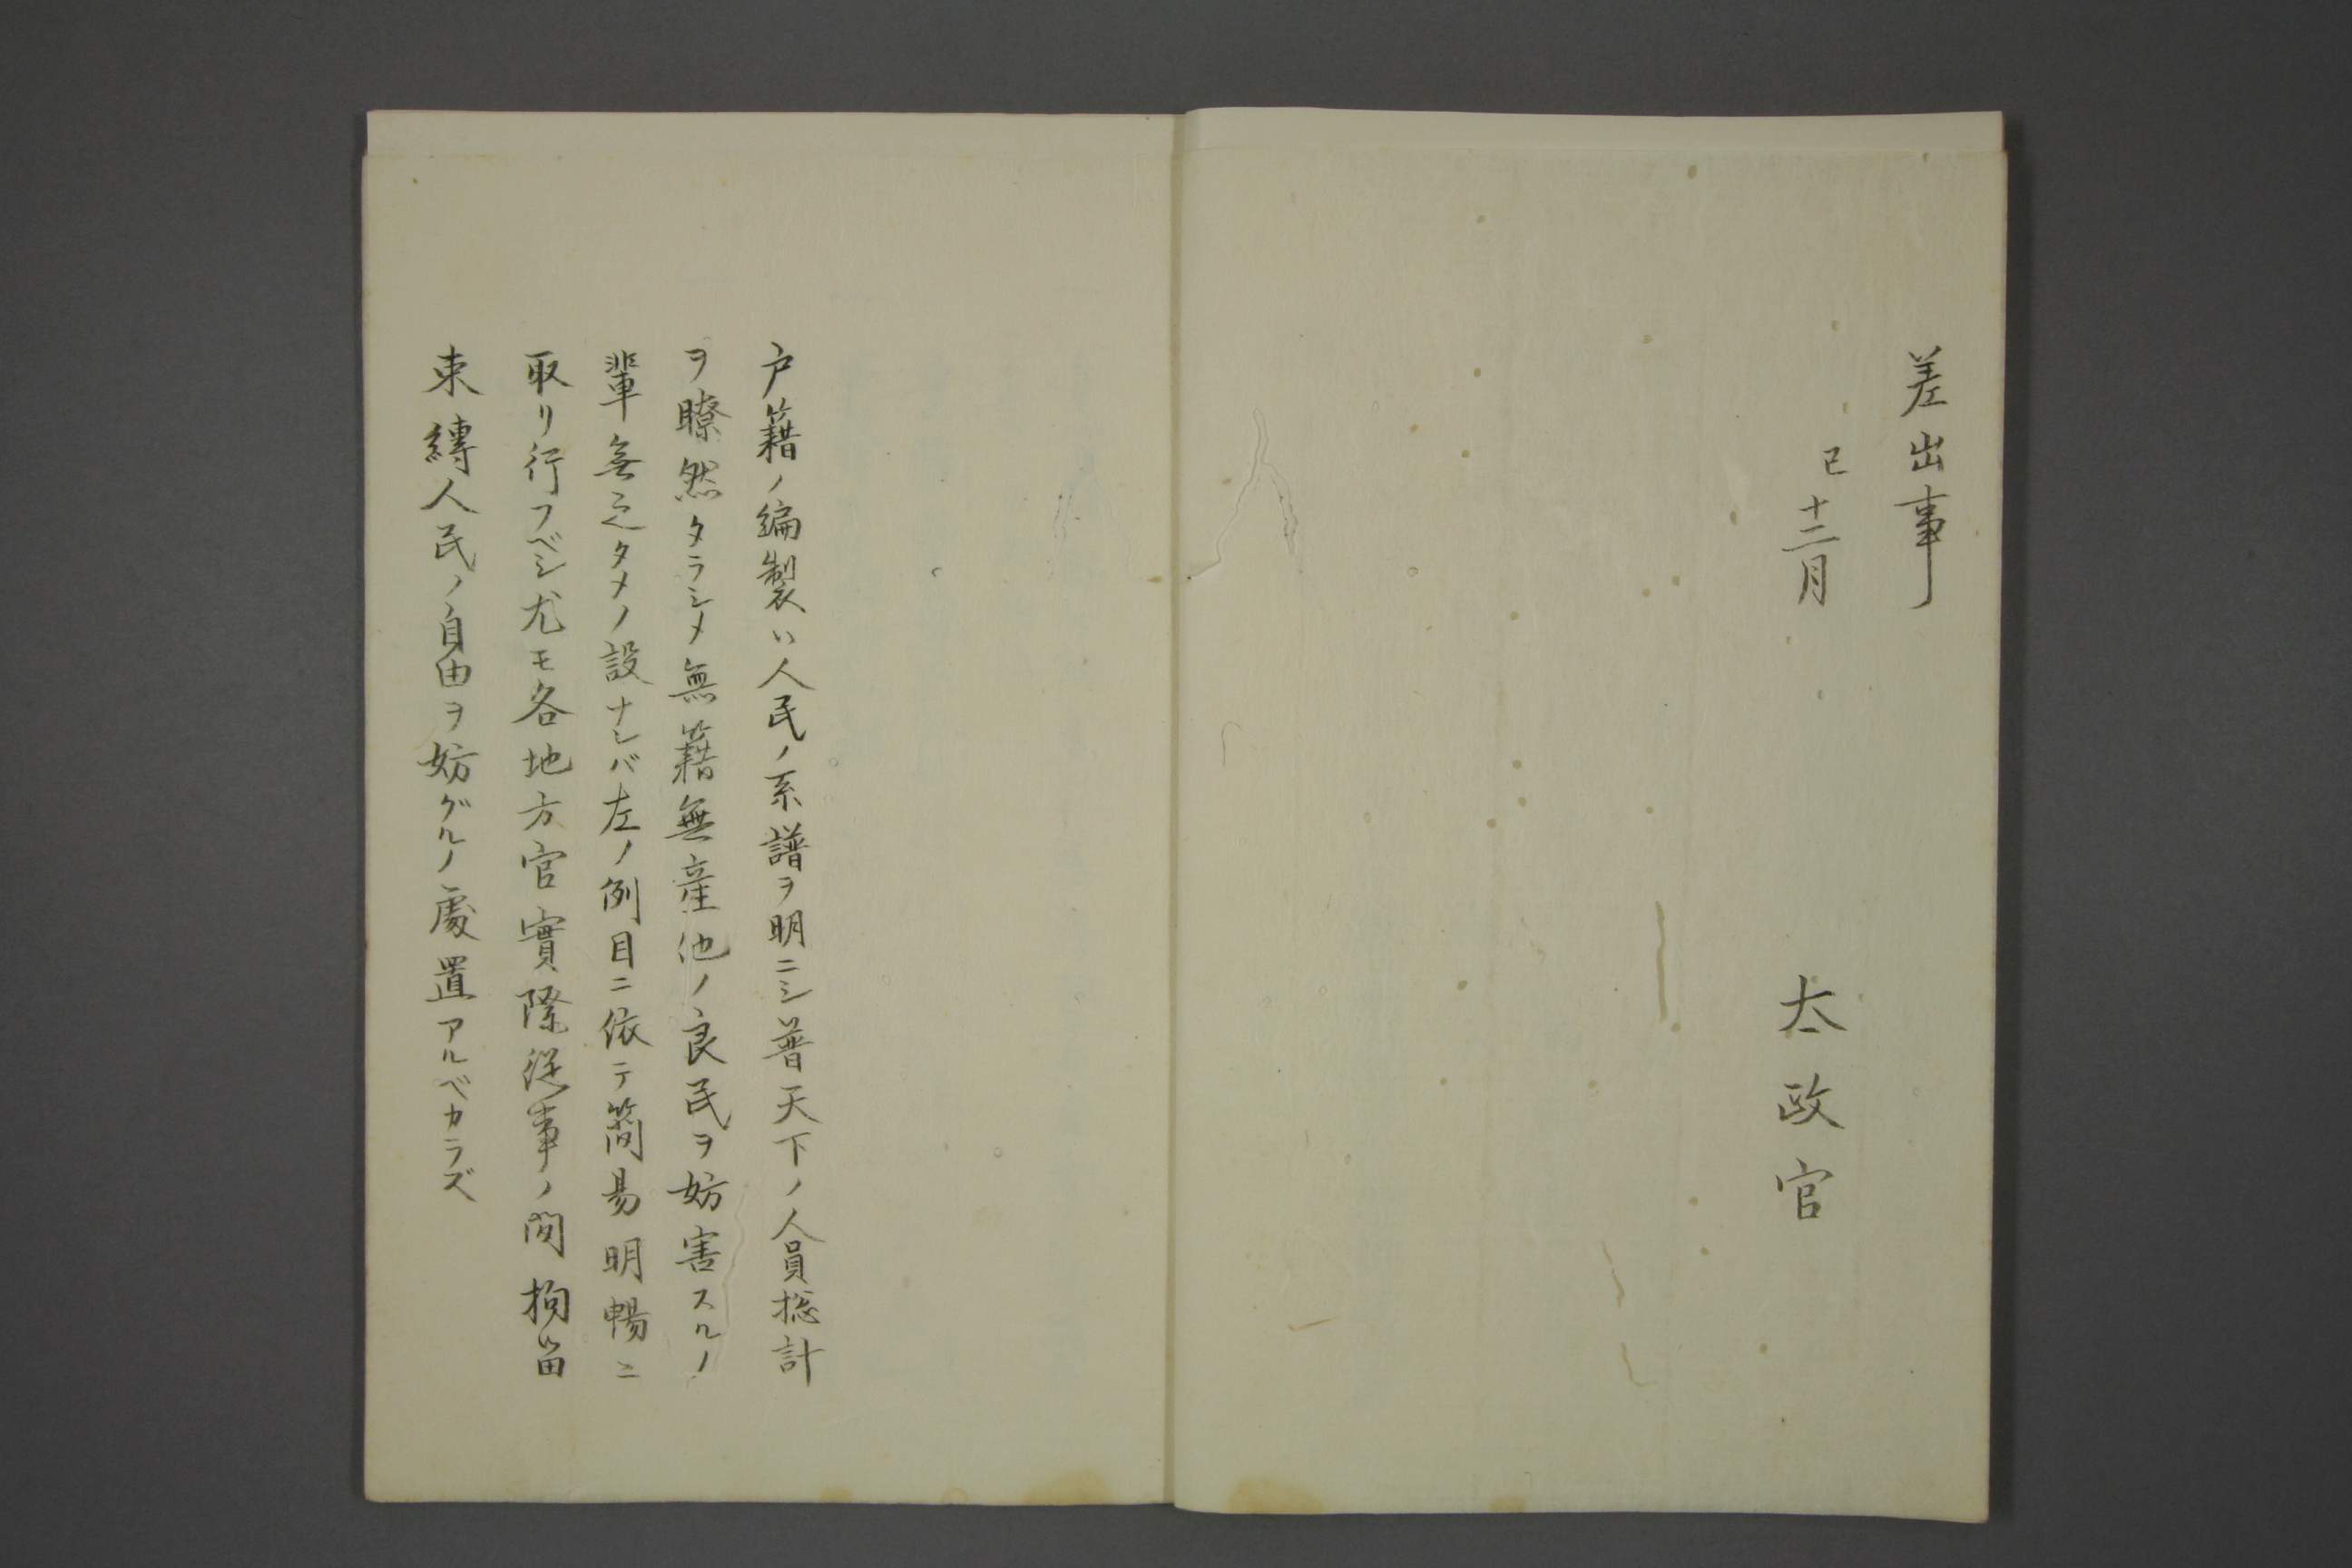 差出事
巳十二月
太政官
戸籍ノ編製ハ人民ノ系譜ヲ明ニシ普天下ノ人員総計
ヲ瞭然タラシメ無籍無産他ノ良民ヲ妨害スルノ
輩無之タメノ設ナレバ左ノ例目ニ依テ簡易明暢ニ
取リ行フベシ尤モ各地方官實際従事ノ間拘留
束縛人民ノ自由ヲ妨グルノ處置アルベカラズ